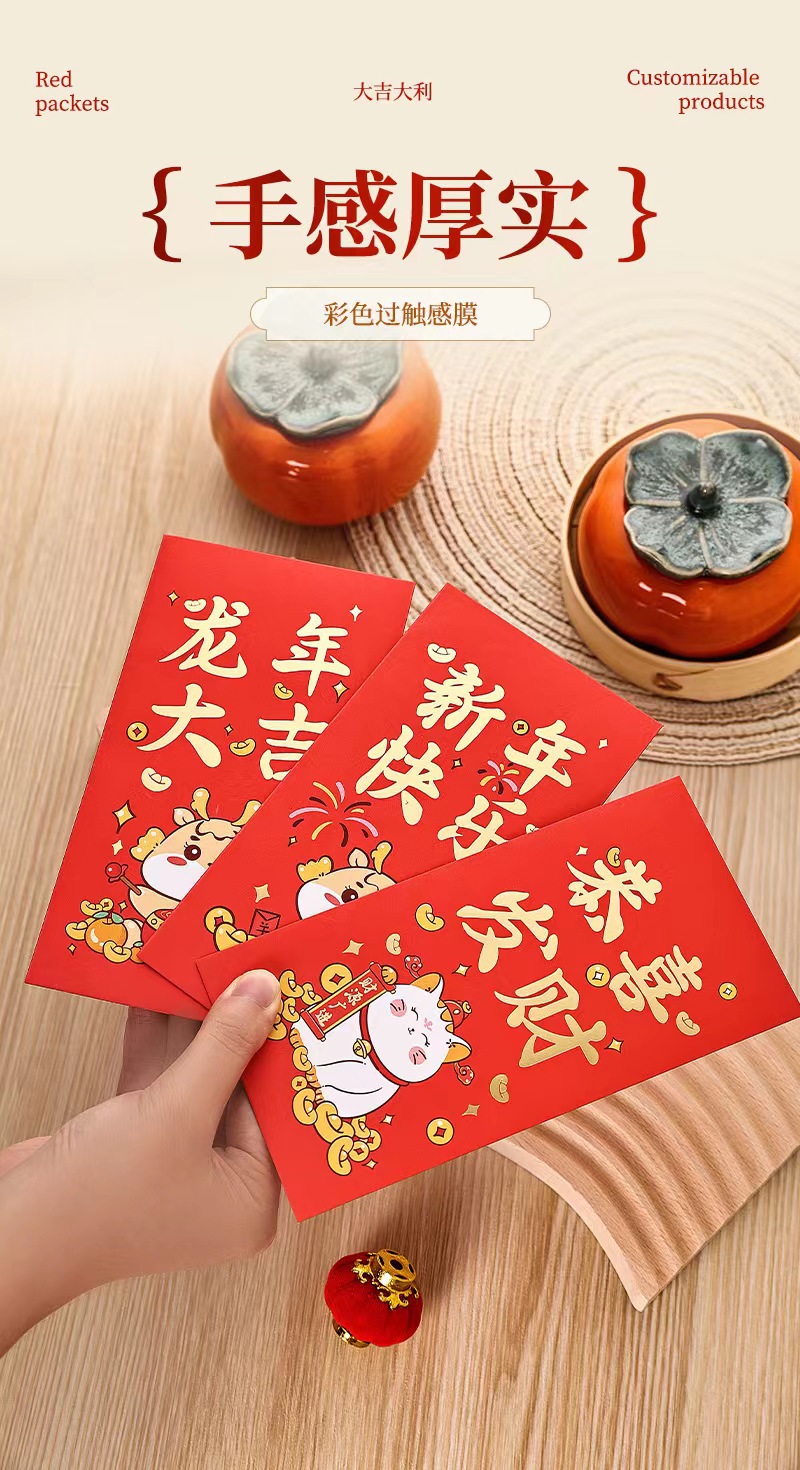 Red
packets
大吉大利
Customizable
products
{手感厚实}
彩色过触感膜
龙年
大吉
新年
快乐
恭喜
发财
財源广进